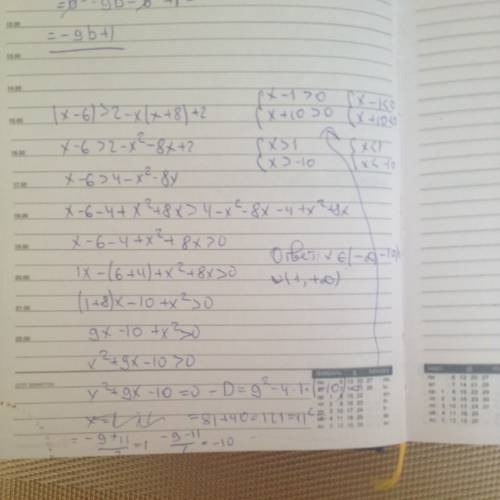 = -9b+1
(x-6)>2-x(x+8)+2
x-6>2-x²-8x+2
x-6>4-x²-8x
x-6-4+x²+8x>4-x²-8x-4+x²+8x
x-6-4+x²+8x>0
1x-(6+4)+x²+8x>0
(1+8)x-10+x²>0
9x-10+x²>0
x²+9x-10>0
x²+9x-10=0 - D=9²-4·1·(-10)=
=81+40=121=11²
= -9+11/2=1 -9-11/2=-10
{x-1>0 {x-1<0
{x+10>0 {x+10<0
{x>1 {x<1
{x>-10 {x<-10
Ответ: x∈(-∞,-10)
∪(1,+∞)